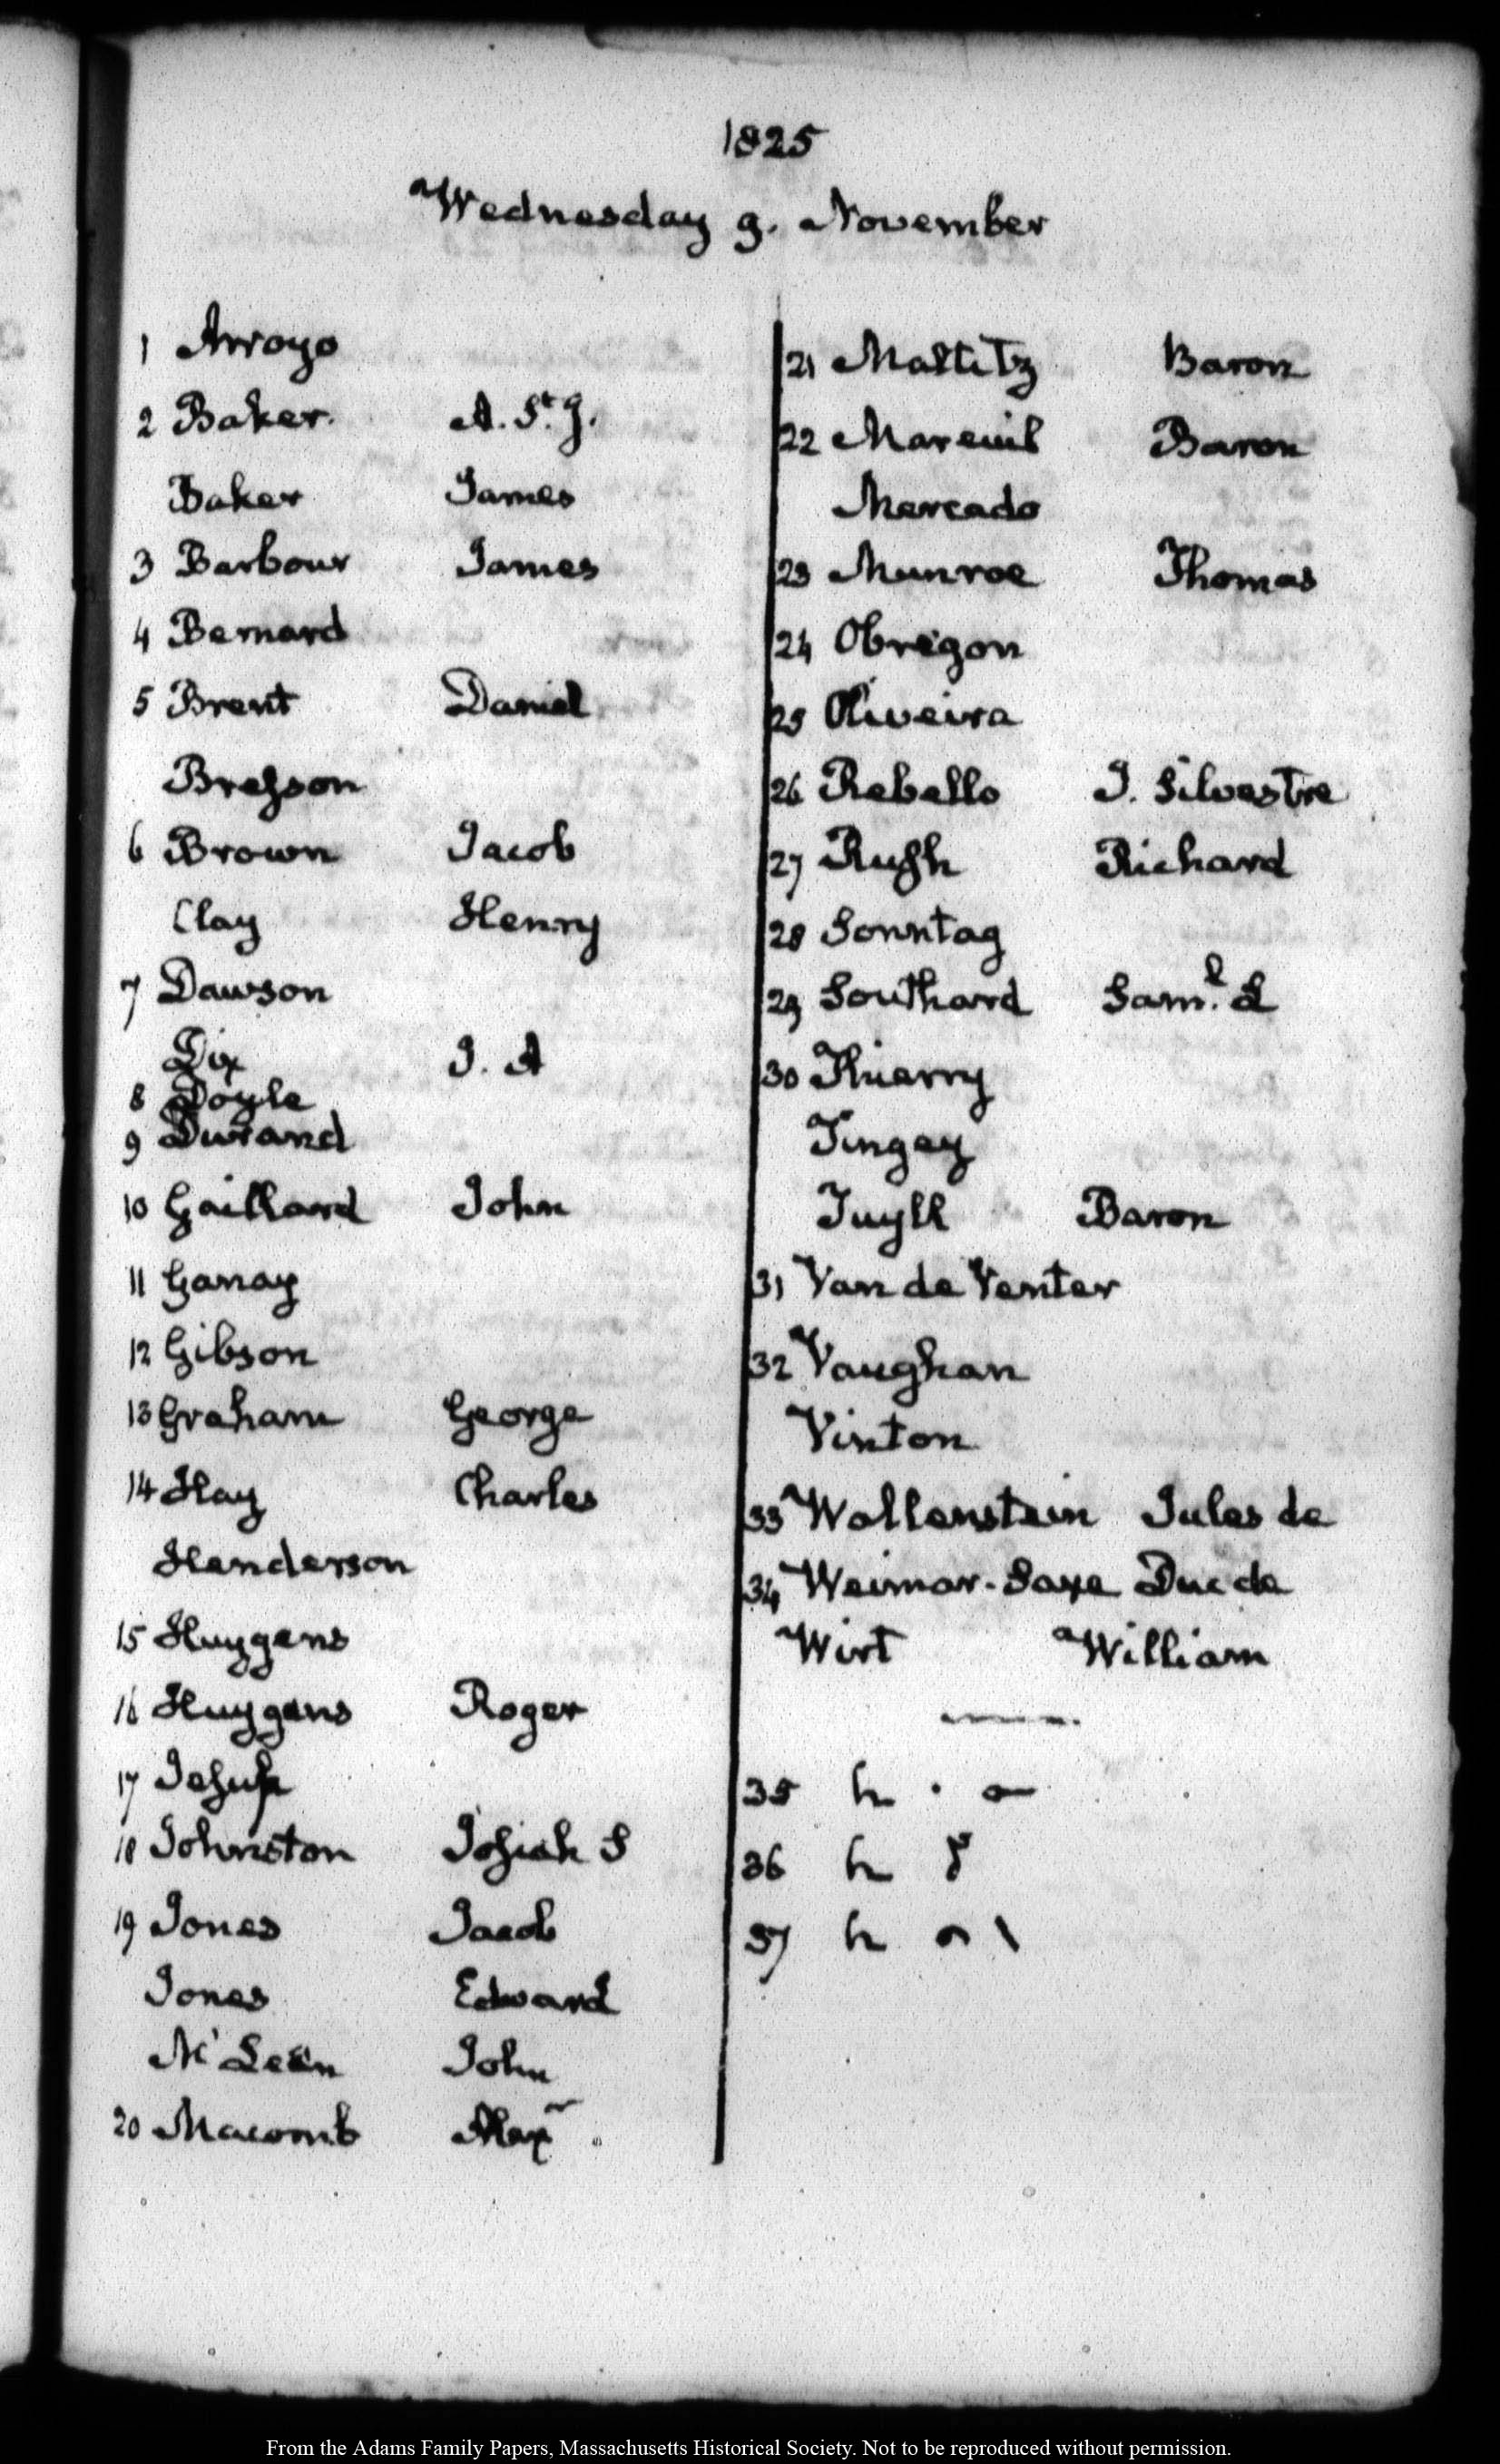 1825
Wednesday 9. November
1 Arroyo
2 Baker. A. St. J.
Baker James
3 Barbour James
4 Bernard
5 Brent Daniel
Breſson
6 Brown Jacob
Clay Henry
7 Dawson
Dix J. A
8 Doyle
9 Durand
10 Gaillard John
11 Ganay
12 Gibson
13 Graham George
14 Hay Charles
Henderson
15 Huygens
16 Huygens Roger
17 Jeſup
18 Johnston Joſiah S
19 Jones Jacob
Jones Edward
McLean John
20 Macomb Alexr.
21 Maltitz Baron
22 Mareuil Baron
Mercado
23 Munroe Thomas
24 Obregon
25 Oliveira
26 Rebello J. Silvestre
27 Ruſh Richard
28 Sonntag
29 Southard Saml. L
30 Thierry
Tingey
Tuyll Baron
31 Van de Venter
32 Vaughan
Vinton
33 Wallenstein Jules de
34 Weimar-Saxe Duc de
Wirt William
35
36
37
From the Adams Family Papers, Massachusetts Historical Society. Not to be reproduced without permission.